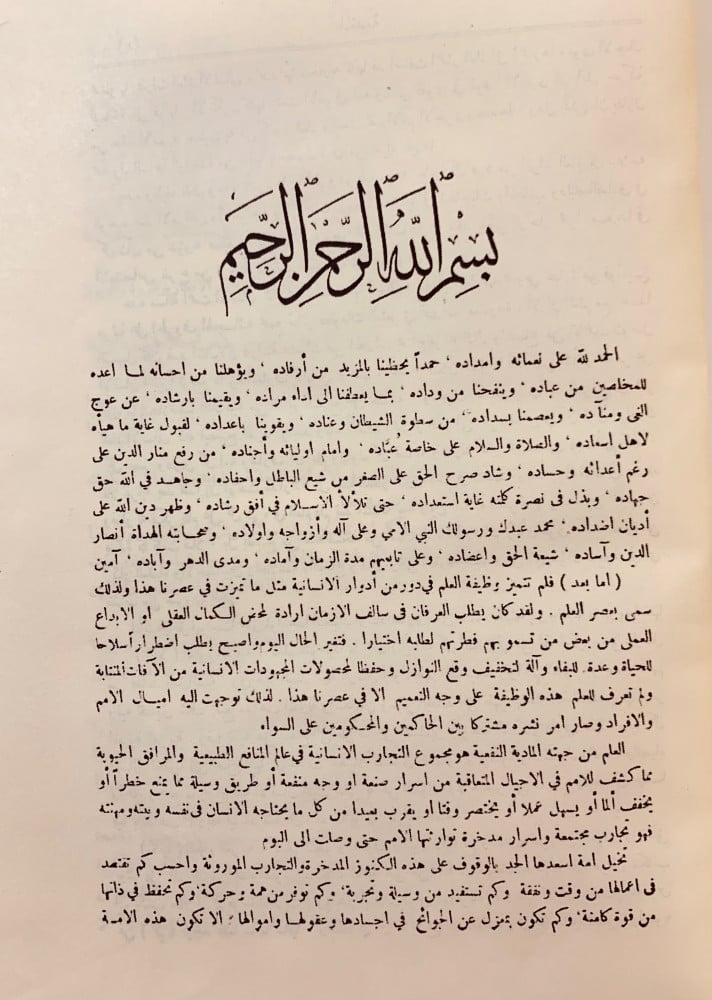 بسم الله الرحمن الرحيم
الحمد لله على نعمائه وامداده، حمداً يحظينا بالمزيد من أرفاده، ويؤهلنا من احسانه لما اعده
للمخلصين من عباده، وينفحنا من وداده، بما يعطفنا الى اداء مراده، ويقيمنا بارشاده، عن عوج
الغى ومنآده، ويعصمنا بسداده، من سطوة الشيطان وعناده، ويقوينا باعداده، لقبول غاية ما هيأه
لاهل اسعاده، والصلاة والسلام على خاصة عبّاده، وامام اوليائه وأجناده، من رفع منار الدين على
رغم أعدائه وحساده، وشاد صرح الحق على الصغر من شيع الباطل واحفاده، وجاهد في الله حق
جهاده، وبذل فى نصرة كلمته غاية استعداده، حتى تلألأ الاسلام في أفق رشاده، وظهر دين الله على
أديان اضداده، محمد عبدك ورسولك النبي الامي وعلى آله وأزواجه واولاده، وصحابته الهداة أنصار
الدين وآساده، شيعة الحق واعضاده، وعلى تابعيهم مدة الزمان وآماده، ومدى الدهر وآباده، آمين
(اما بعد) فلم تتميز وظيفة العلم في دور من أدوار الانسانية مثل ما تميزت في عصرنا هذا ولذلك
سمى بعصر العلم. ولقد كان يطلب العرفان فى سالف الازمان ارادة لمحض الكمال العقلى او الابداع
العملى من بعض من تسمو بهم فطرتهم لطلبه اختيارا. فتغير الحال اليوم واصبح يطلب اضطراراً سلاحا
للحياة وعدة للبقاء وآلة لتخفيف وقع النوازل وحفظا لمحصولات المجهودات الانسانية من الآفات المنتابة
ولم تعرف للعلم هذه الوظيفة على وجه التعميم الا في عصرنا هذا. لذلك توجهت اليه اميال الامم
والافراد وصار امر نشره مشتركا بين الحاكمين والمحكومين على السواء
العلم من جهته المادية النفعية هو مجموع التجارب الانسانية في عالم المنافع الطبيعية والمرافق الحيوية
مما كشف للامم في الاجيال المتعاقبة من اسرار صنعة او وجه منفعة أو طريق وسيلة مما يمنع خطراً أو
يخفف ألما أو يسهل عملا أو يختصر وقتا او يقرب بعيدا من كل ما يحتاجه الانسان فى نفسه وبيته ومهنته
فهو تجارب مجتمعة واسرار مدخرة توارثها الامم حتى وصلت الى اليوم
تخيل امة اسعدها الجد بالوقوف على هذه الكنوز المدخرة والتجارب الموروثة واحسب كم تقتصد
فى اعمالها من وقت ونفقة وكم تستفيد من وسيلة وتجربة، وكم توفر من همة وحركة، وكم تحفظ في ذاتها
من قوة كامنة، وكم تكون بمعزل عن الجوائح في اجسادها وعقولها واموالها؛ الا تكون هذه الامة